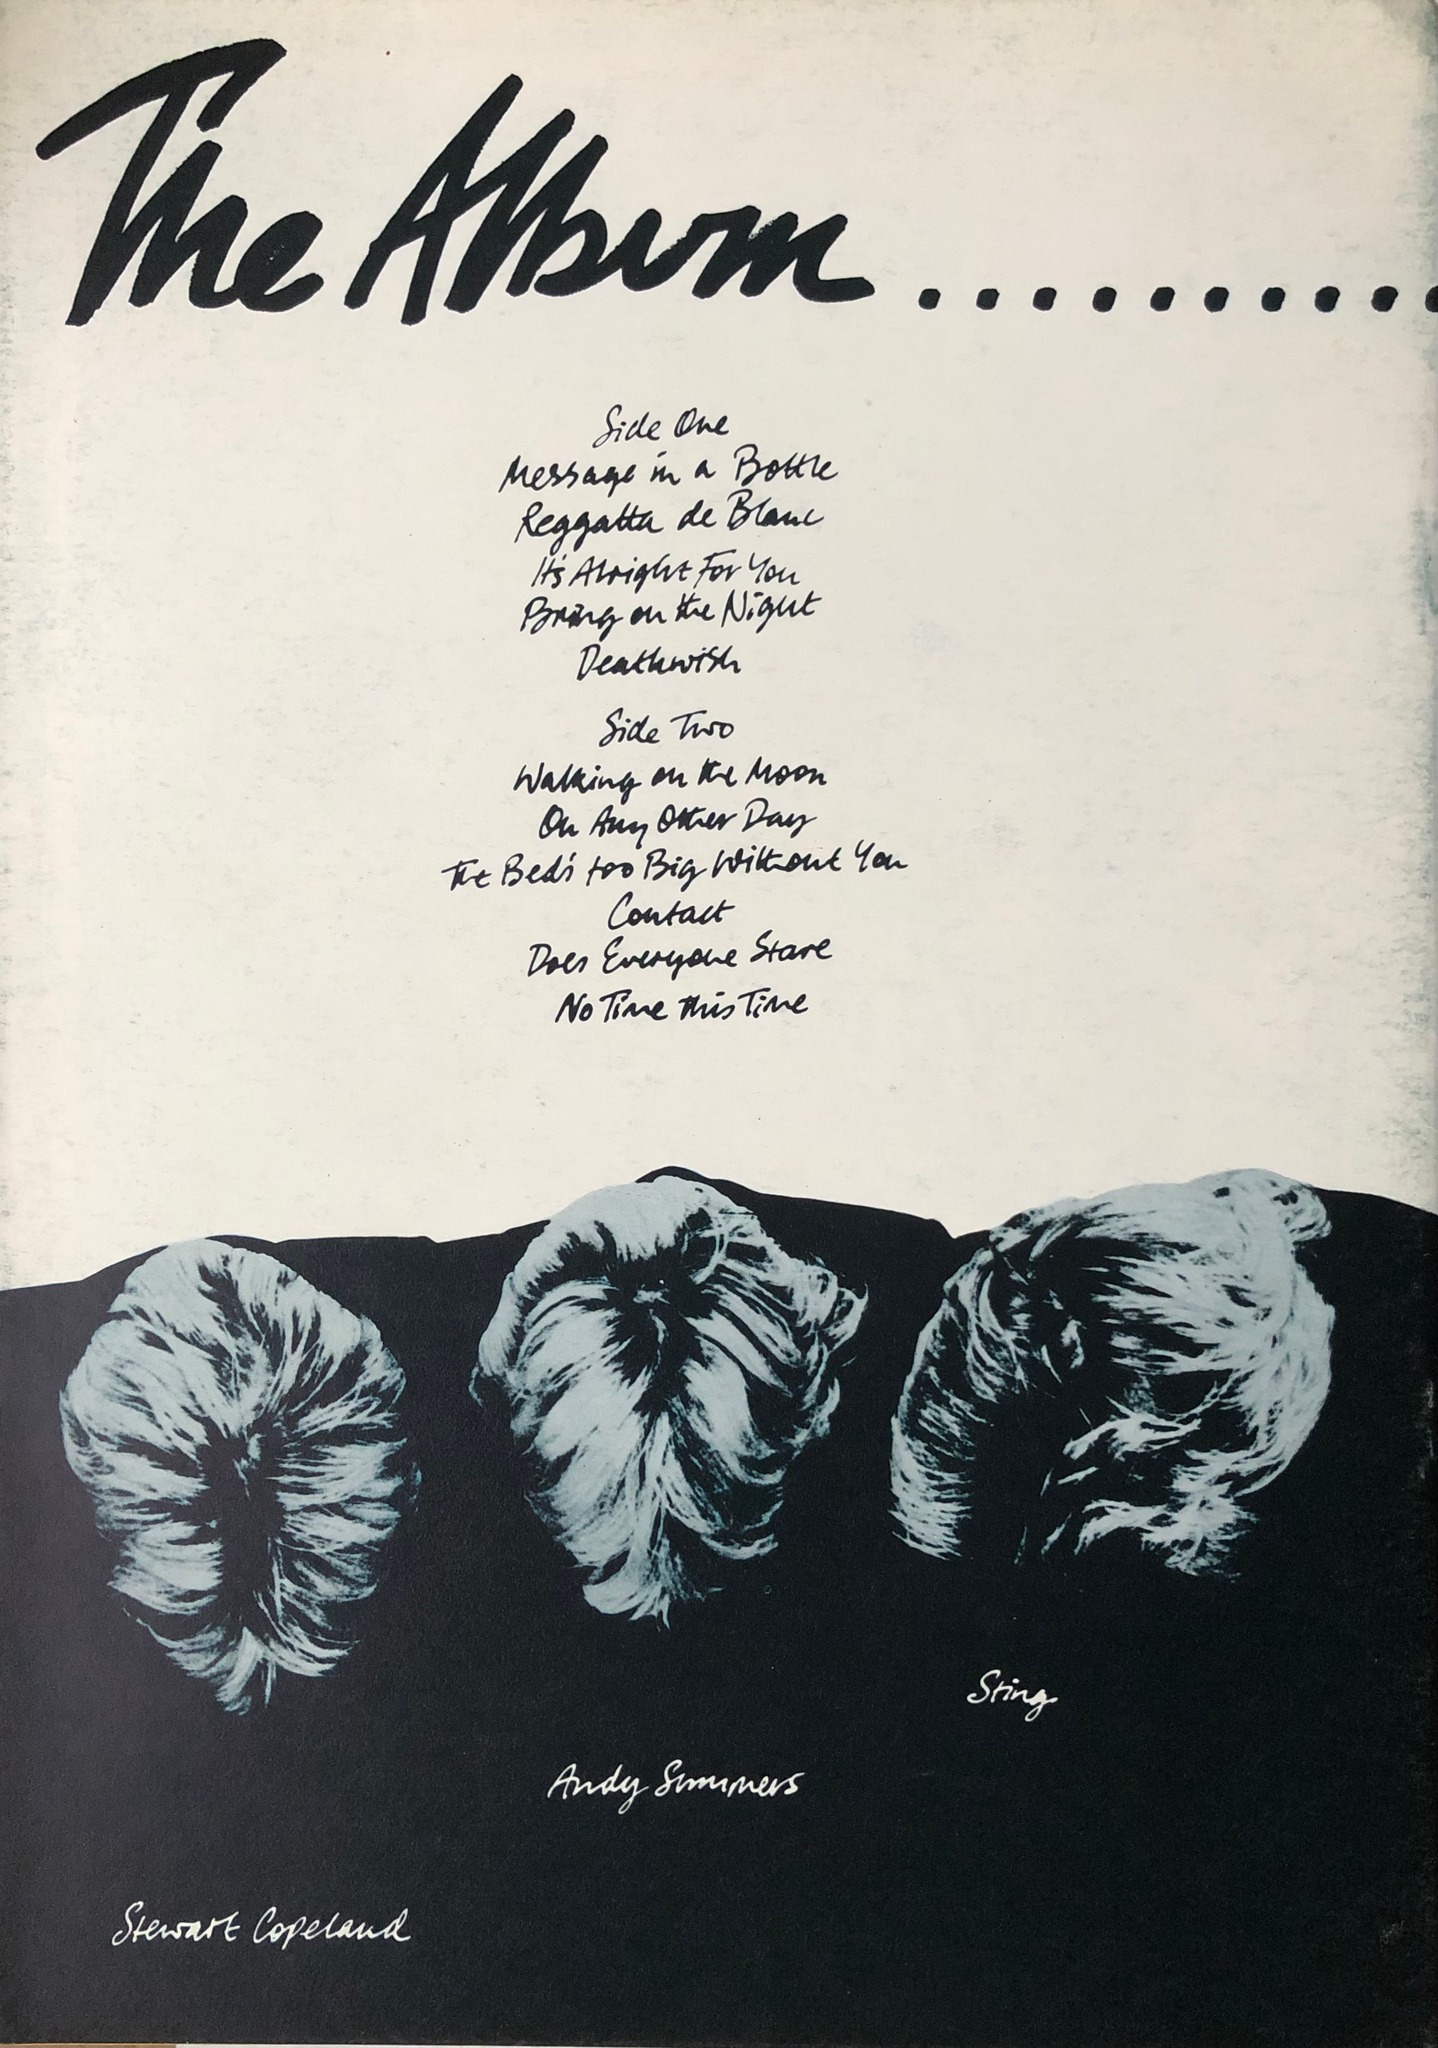 The Album...........
Side One
Message in a Bottle
Reggatta de Blanc
It's Alright For You
Bring on the Night
Deathwish
Side Two
Walking on the Moon
On Any Other Day
The Bed's too Big Without You
Contact
Does Everyone Stare
No Time this Time
Sting
Andy Summers
Stewart Copeland